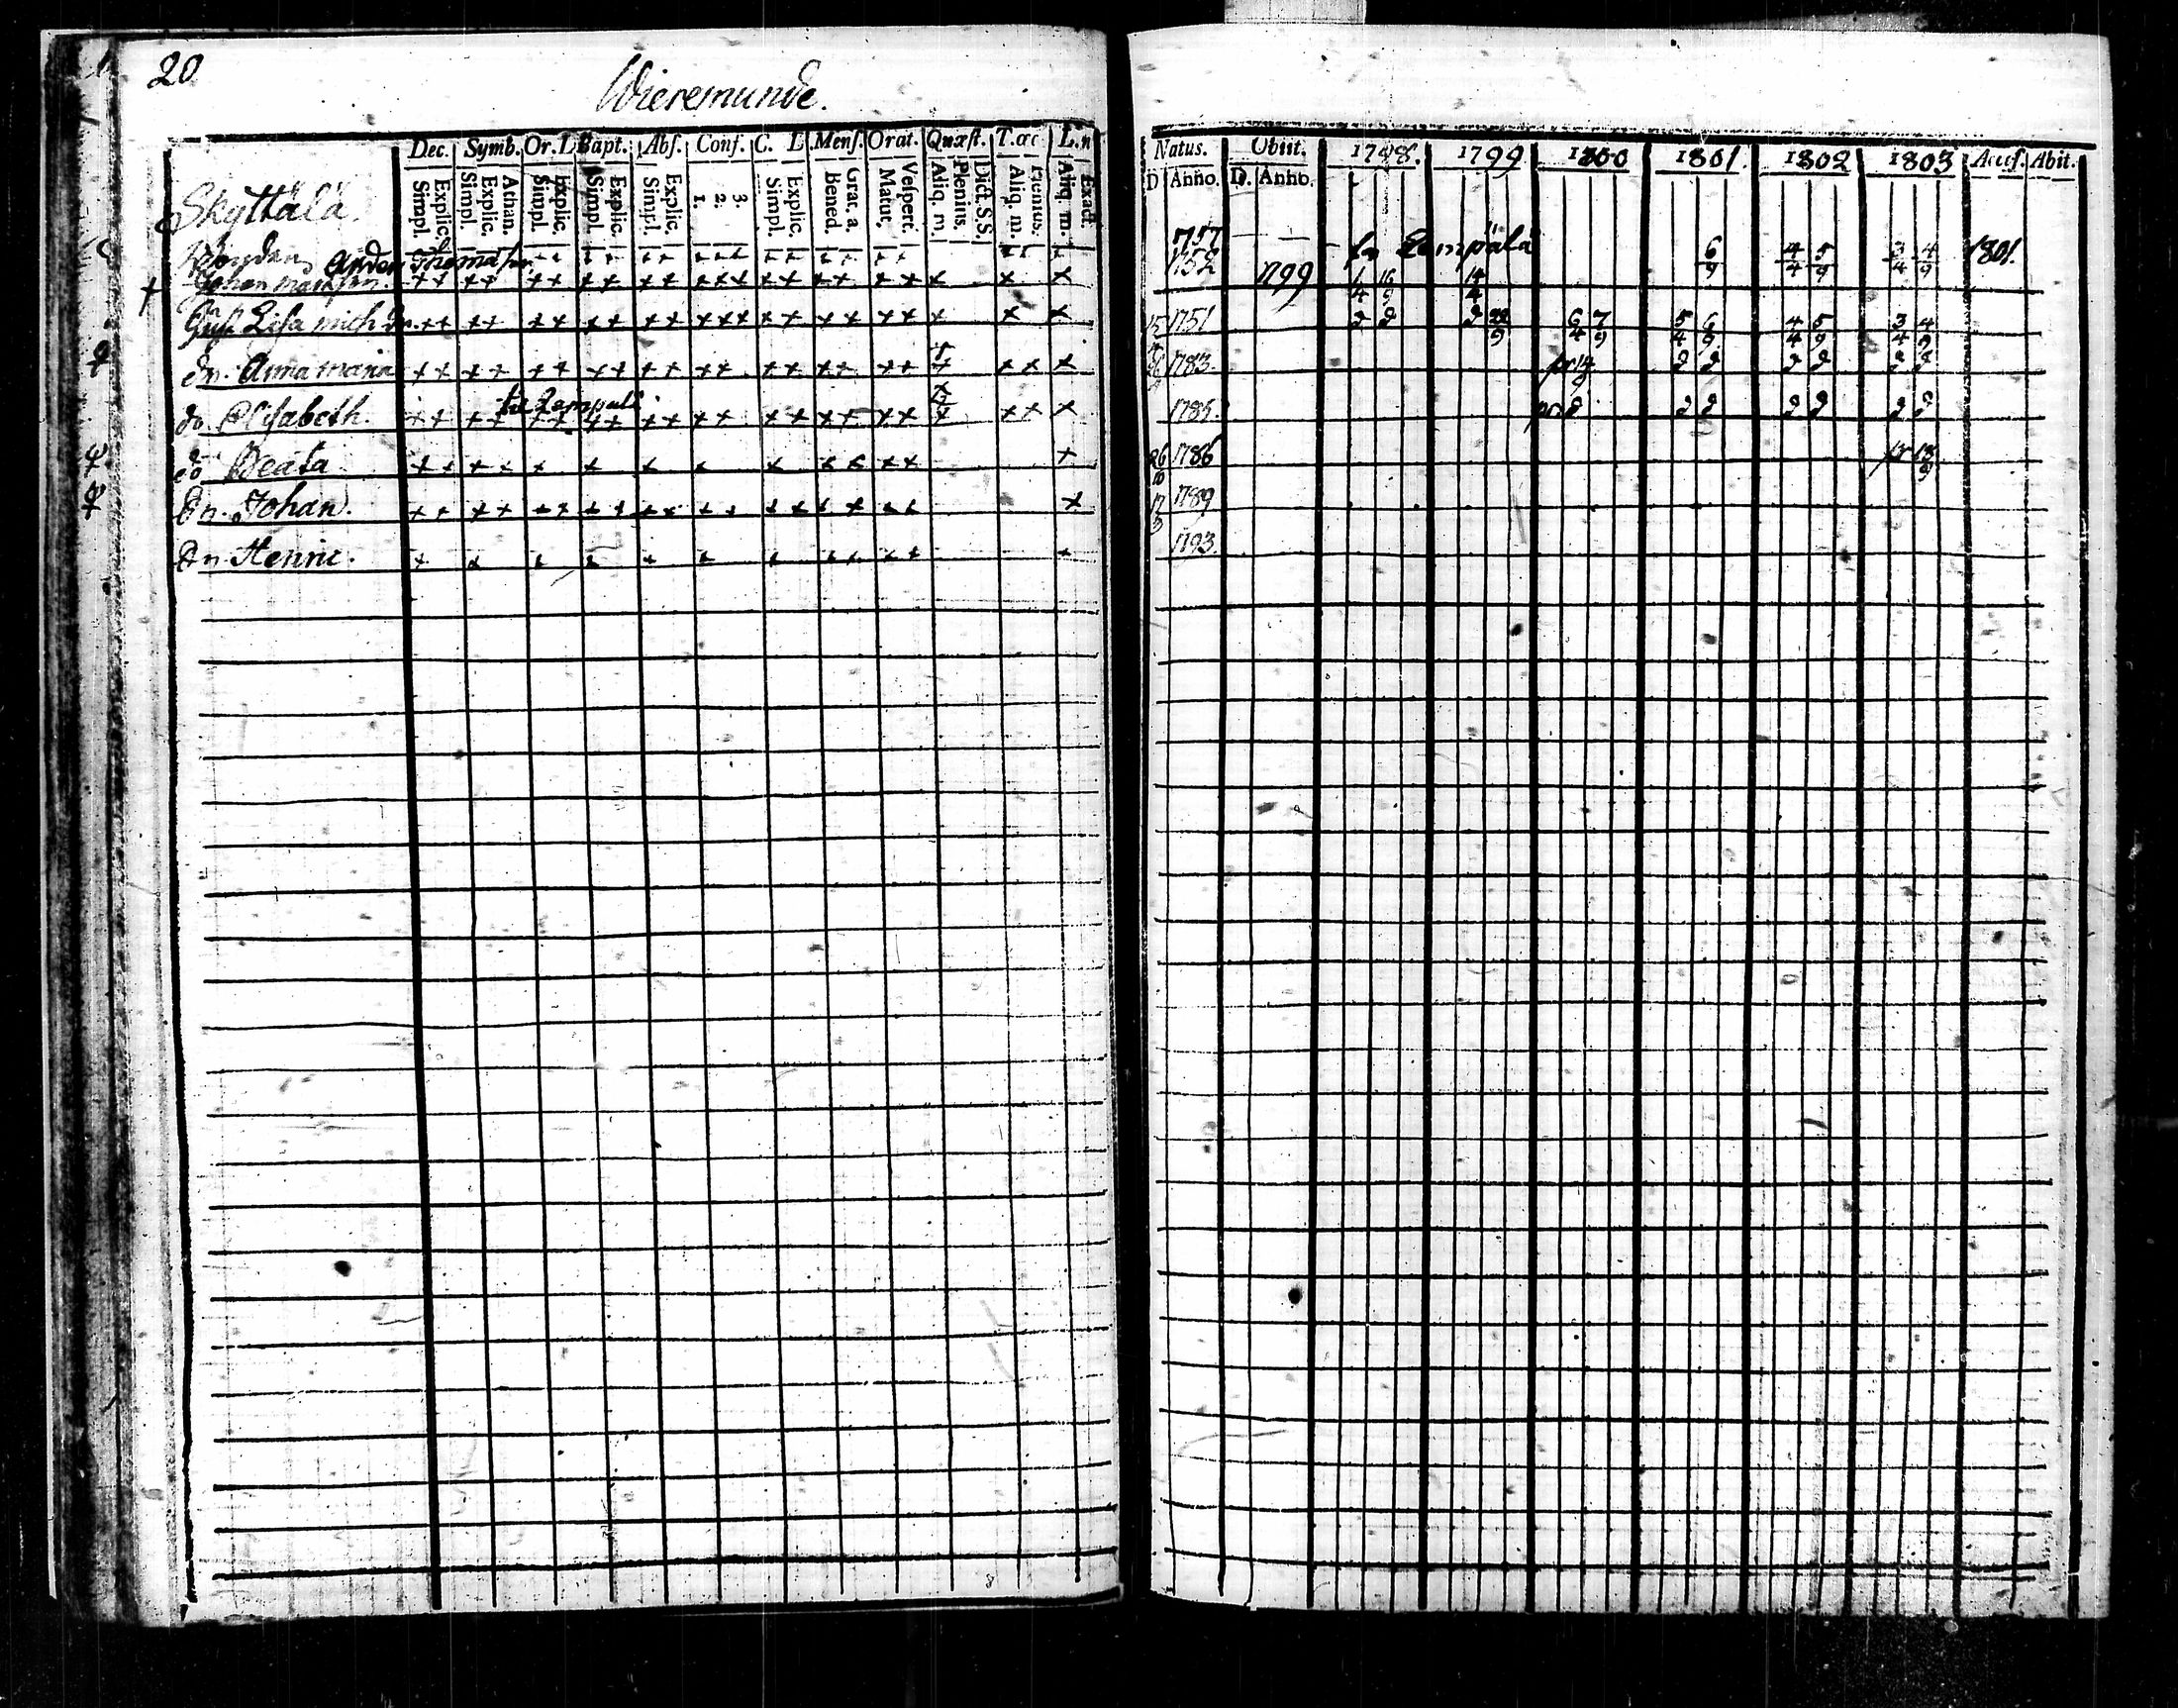 20
Wieremunde.
Dec. Symb. Or. L Bapt. Abſ. Conf. C. L Menſ. Orat. Quæſt. T. œc L. n
Simpl. Explic. Simpl. Explic. Athan. Simpl. Explic. Simpl. Explic. Simpl. Explic. 1. 2. 3. Simpl. Explic. Bened. Grat. a. Matut. Veſpert. Aliq. m. Plenius. Dict. S. S. Aliq. m. Plenius. Aliq. m. Exact.
Natus. Obiit. 1798. 1799 1800 1801. 1802 1803 Acceſ. Abit.
D Anno. D. Anno.
Skyttälä.
Anders Thomasson 1757 fr Lempälä 6/9 4/4 5/9 3/4 4/9 1801.
Johan 1752 1799 1/4 16/9 14/4
Lisa 1751 2 2 2 22/9 6/4 7/9 5/4 6/9 4/4 5/9 3/4 4/9
dr. Anna Maria 1783. 2 2 2 2 2 2
till Lempälä
do. Elisabeth. 1785. pr 2 2 2 2 2 2 2
do Beata 26/10 1786 pr 18/9
Sn. Johan. 1789
Sn. Henric. 1793.